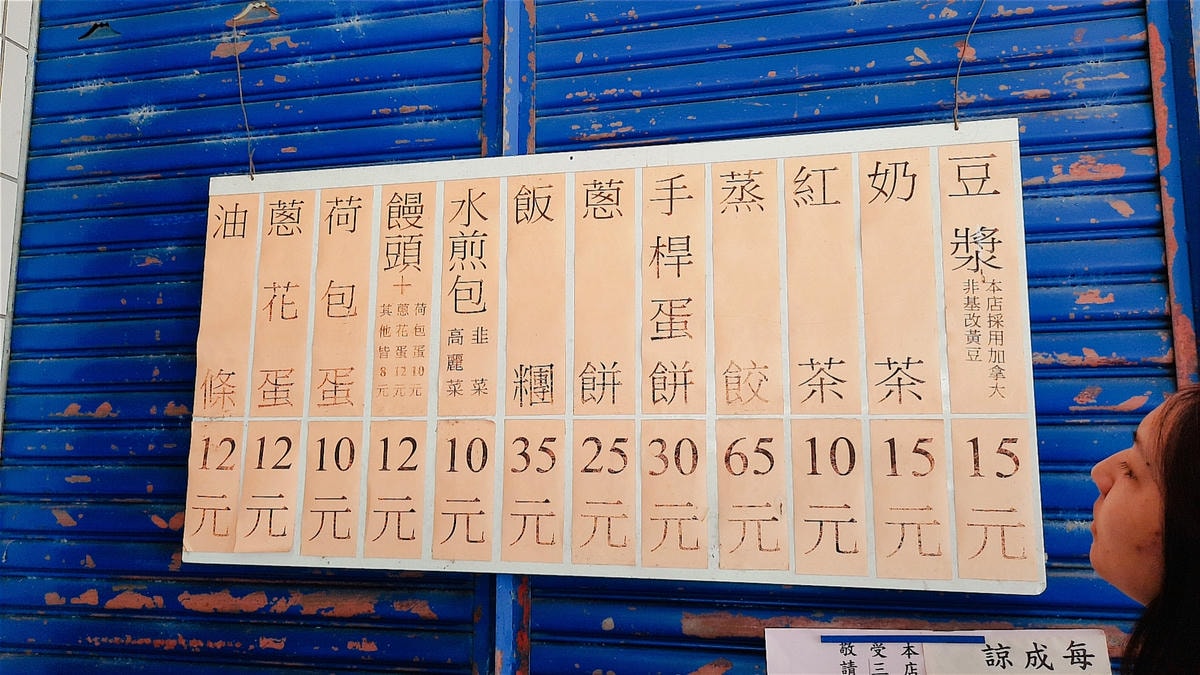 豆漿
本店採用加拿大
非基改黃豆
15元
奶茶
15元
紅茶
10元
蒸餃
65元
手桿蛋餅
30元
蔥餅
25元
飯糰
35元
水煎包
韭菜
高麗菜
10元
饅頭
+
荷包蛋10元
蔥花蛋12元
其他皆8元
12元
荷包蛋
10元
蔥花蛋
12元
油條
12元
每
成
諒
本店
受三
敬請